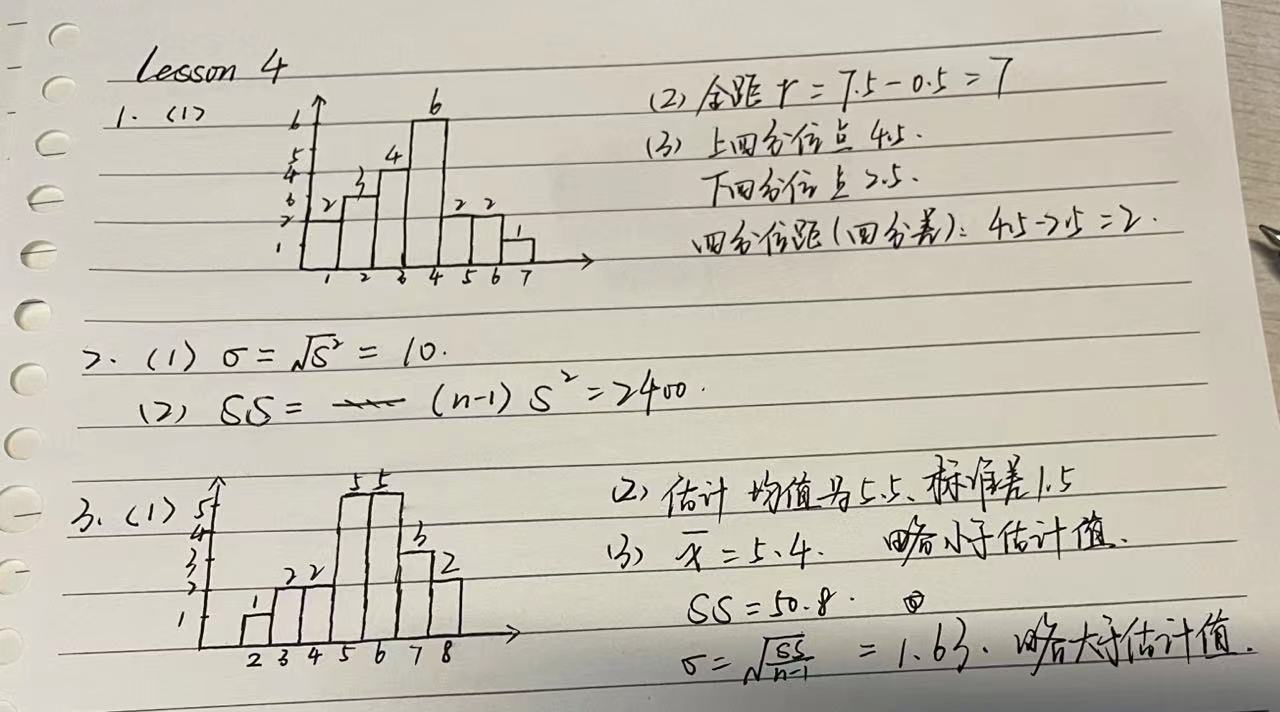 Lesson 4
1. (1)
6
5
4
3
2
1
2 3 4 6 2 2 1
1 2 3 4 5 6 7
(2) 全距 r = 7.5 - 0.5 = 7
(3) 上四分位点 4.5.
下四分位点 2.5.
四分位距(四分差): 4.5 - 2.5 = 2.
2. (1) σ = √S² = 10.
(2) SS = (n-1) S² = 2400.
3. (1)
5
4
3
2
1
1 2 2 5 5 3 2
2 3 4 5 6 7 8
(2) 估计 均值为5.5、标准差1.5
(3) x̄ = 5.4. 略小于估计值.
SS = 50.8.
σ = √(SS/(n-1)) = 1.63. 略大于估计值.